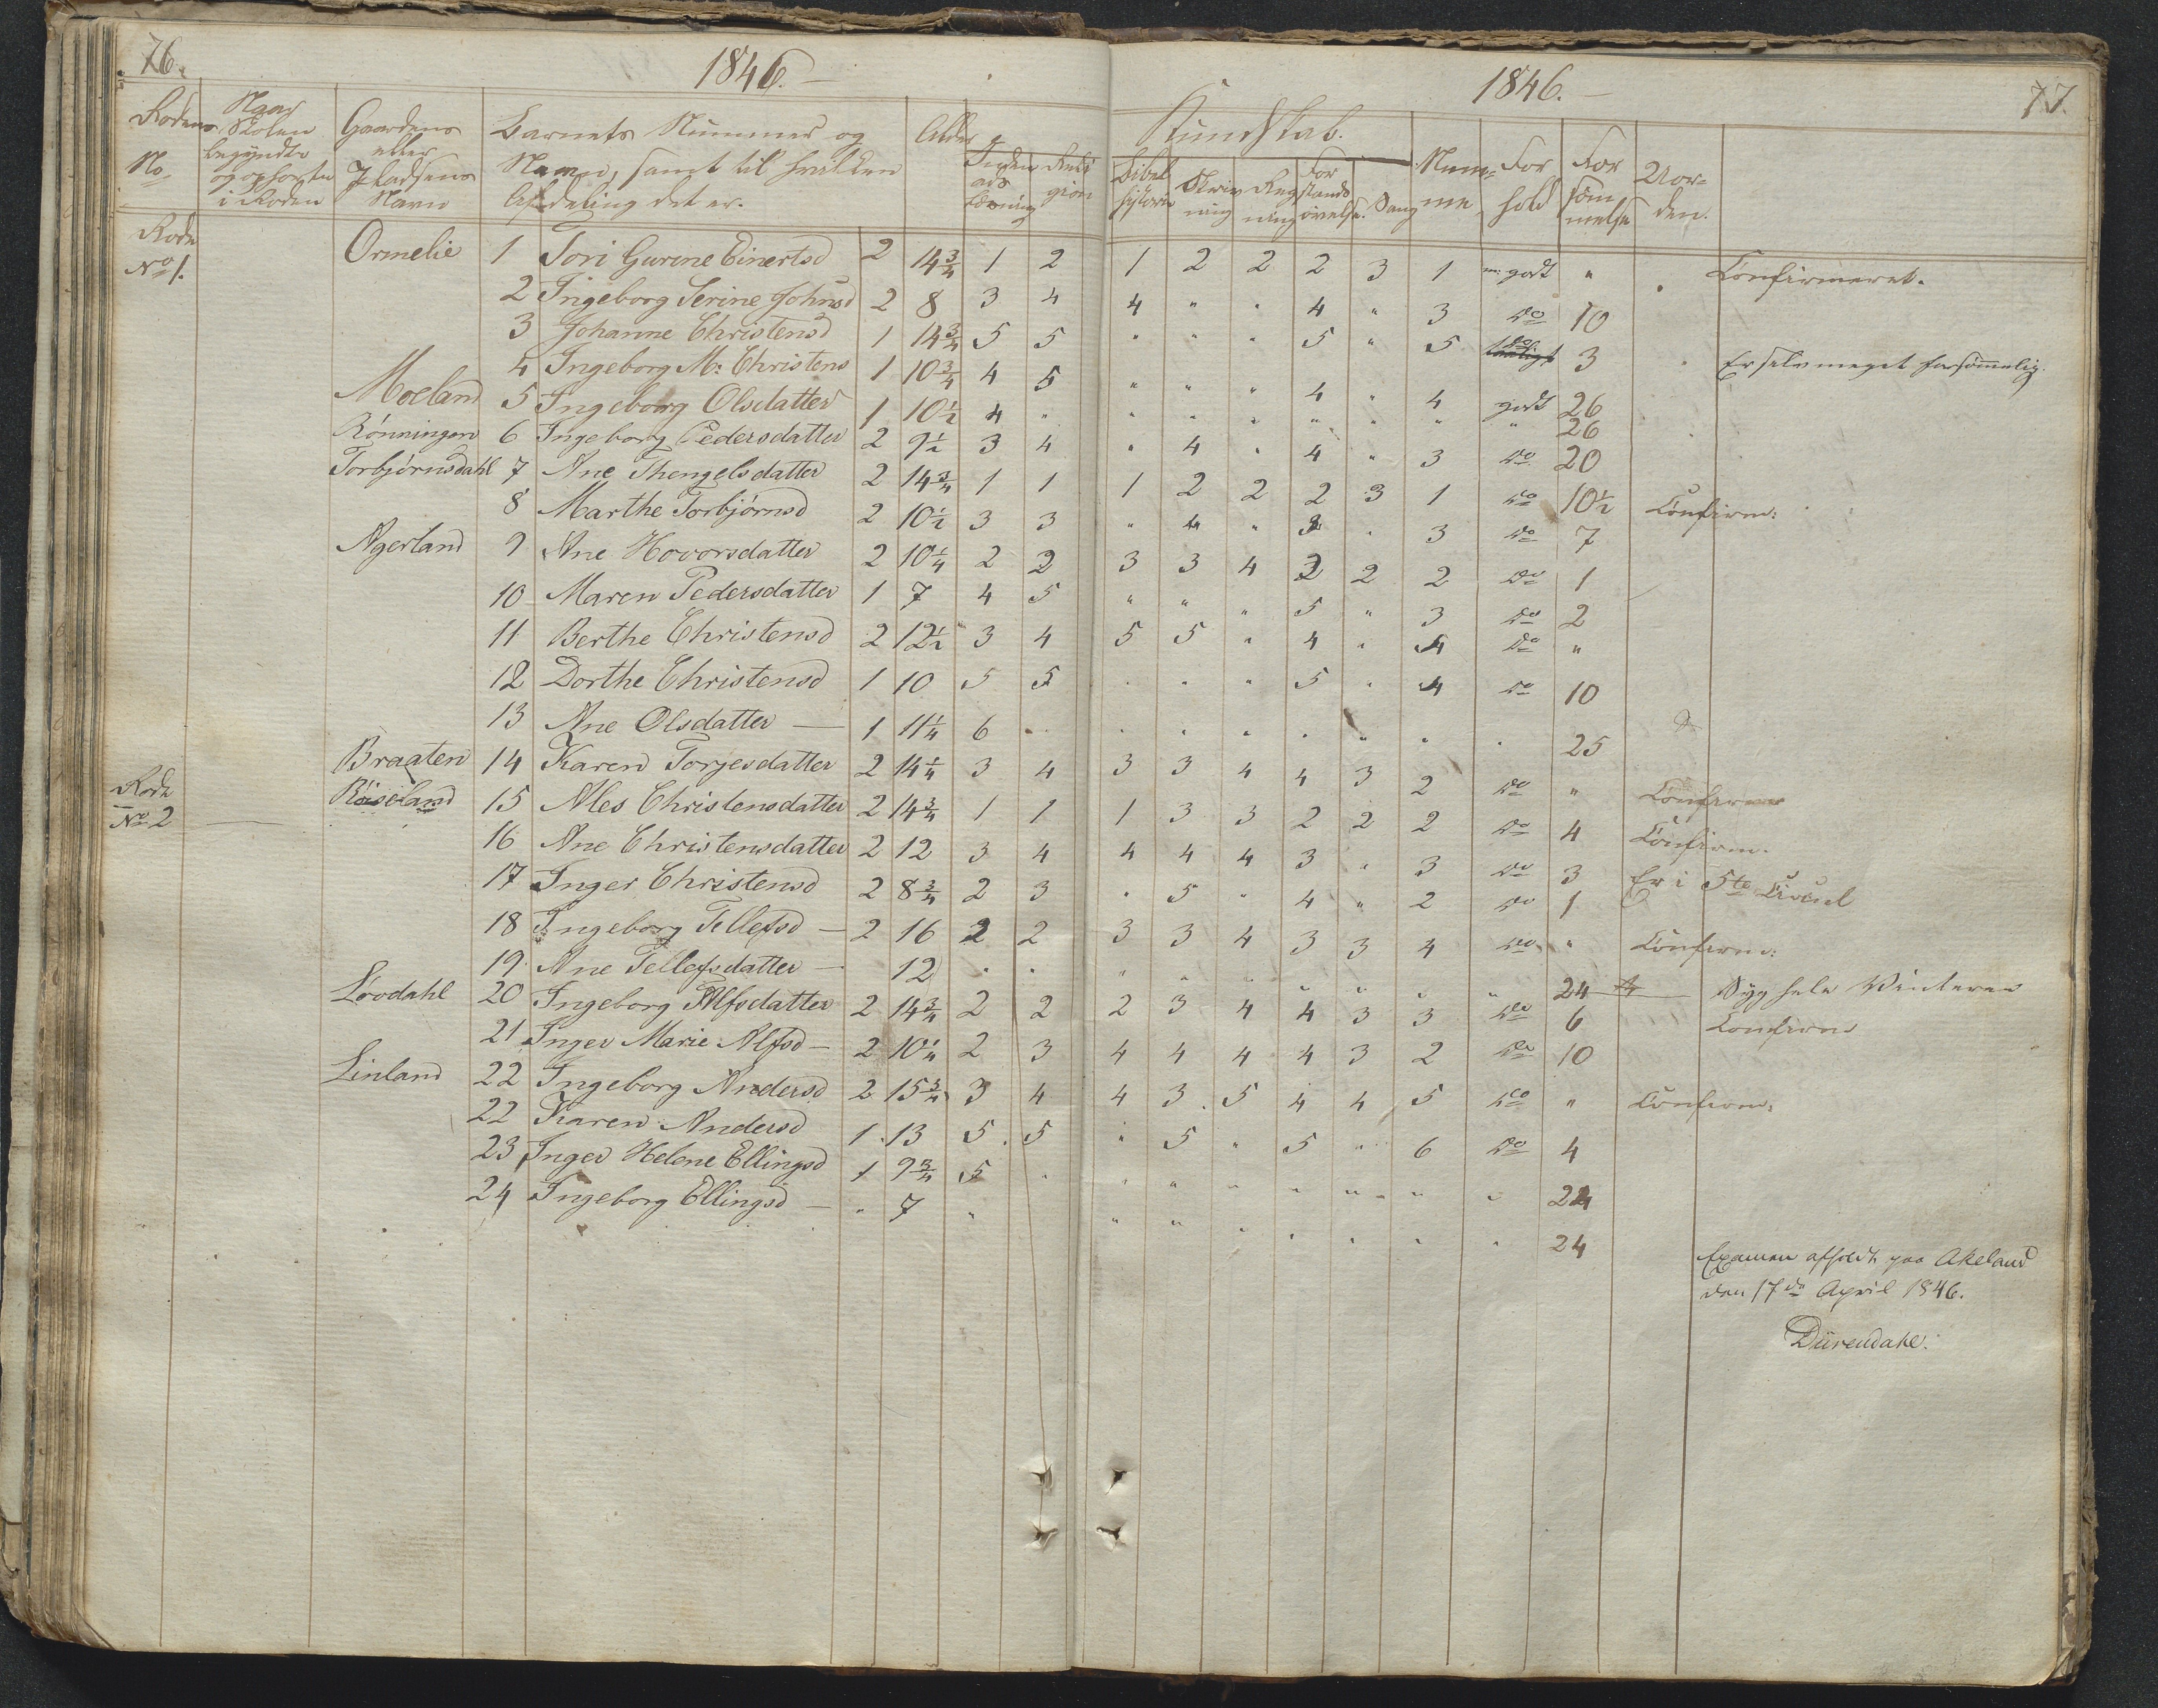 76.
1846.
Rodens No.
Naar Skolen begyndte og ophørte i Roden
Gaardens eller Pladsens Navn
Barnets Nummer og Navn, samt til hvilken Afdeling det er.
Alder
Inden ads Læsning
Religion
1846.
77.
Kundskab.
Bibel historie
Skrivning
Regning
Forstands øvelse.
Sang
Nemme
Forhold
Forsømmelse
Vorden.
Rode No 1. Ormelie 1 Tori Gurine Einertsd 2 14¾ 1 2 1 2 2 2 3 1 m: godt " Confirmeret.
2 Ingeborg Serine Johnsd 2 8 3 4 4 " " 4 " 3 do 10
3 Johanne Christensd 1 14¾ 5 5 " " " 5 " 5 do 3 Er selv meget forsømmelig.
4 Ingeborg M: Christens 1 10¾ 4 5 " " " 4 " 4 godt 26
Moeland 5 Ingeborg Olsdatter 1 10½ 4 " " " " " " " " 26
Rønningen 6 Ingeborg Pedersdatter 2 9½ 3 4 " 4 " 4 " 3 do 20
Torbjørnsdahl 7 Ane Thengelsdatter 2 14¾ 1 1 1 2 2 2 3 1 do 10½ Confirm:
8 Marthe Torbjørnsd 2 10½ 3 3 " 4 " 3 " 3 do 7
Agerland 9 Ane Hovorsdatter 2 10¼ 2 2 3 3 4 2 2 2 do 1
10 Maren Pedersdatter 1 7 4 5 " " " 5 " 3 do 2
11 Berthe Christensd 2 12½ 3 4 5 5 " 4 " 4 do "
12 Dorthe Christensd 1 10 5 5 " " " 5 " 4 do 10
13 Ane Olsdatter — 1 11¼ 6 " " " " " " " " 25
Braaten 14 Karen Torjesdatter 2 14¼ 3 4 3 3 4 4 3 2 do " Confirm
Rode No 2 — Røiseland 15 Ales Christensdatter 2 14¾ 1 1 1 3 3 2 2 2 do 4 Confirm.
16 Ane Christensdatter 2 12 3 4 4 4 4 3 " 3 do 3 Er i 5te Circul
17 Inger Christensd 2 8¾ 2 3 " 5 " 4 " 2 do 1
18 Ingeborg Tellefsd — 2 16 2 2 3 3 4 3 3 4 do " Confirm:
19 Ane Tellefsdatter — 12 " " " " " " " " " 24 Syg hele Vinteren
Løvdahl 20 Ingeborg Alfsdatter 2 14¾ 2 2 2 3 4 4 3 3 do 6 Confirm
21 Inger Marie Alfsd — 2 10¼ 2 3 4 4 4 4 3 2 do 10
Linland 22 Ingeborg Andersd 2 15¾ 3 4 4 3 5 4 4 5 do " Confirm:
22 Karen Andersd 1 13 5 5 " 5 " 5 " 6 do 4
23 Inger Helene Ellingsd 1 9¾ 5 " " " " " " " " 24
24 Ingeborg Ellingsd — " 7 " " " " " " " " 24
Examen afholdt paa Akeland
den 17de April 1846.
Dürendahl.